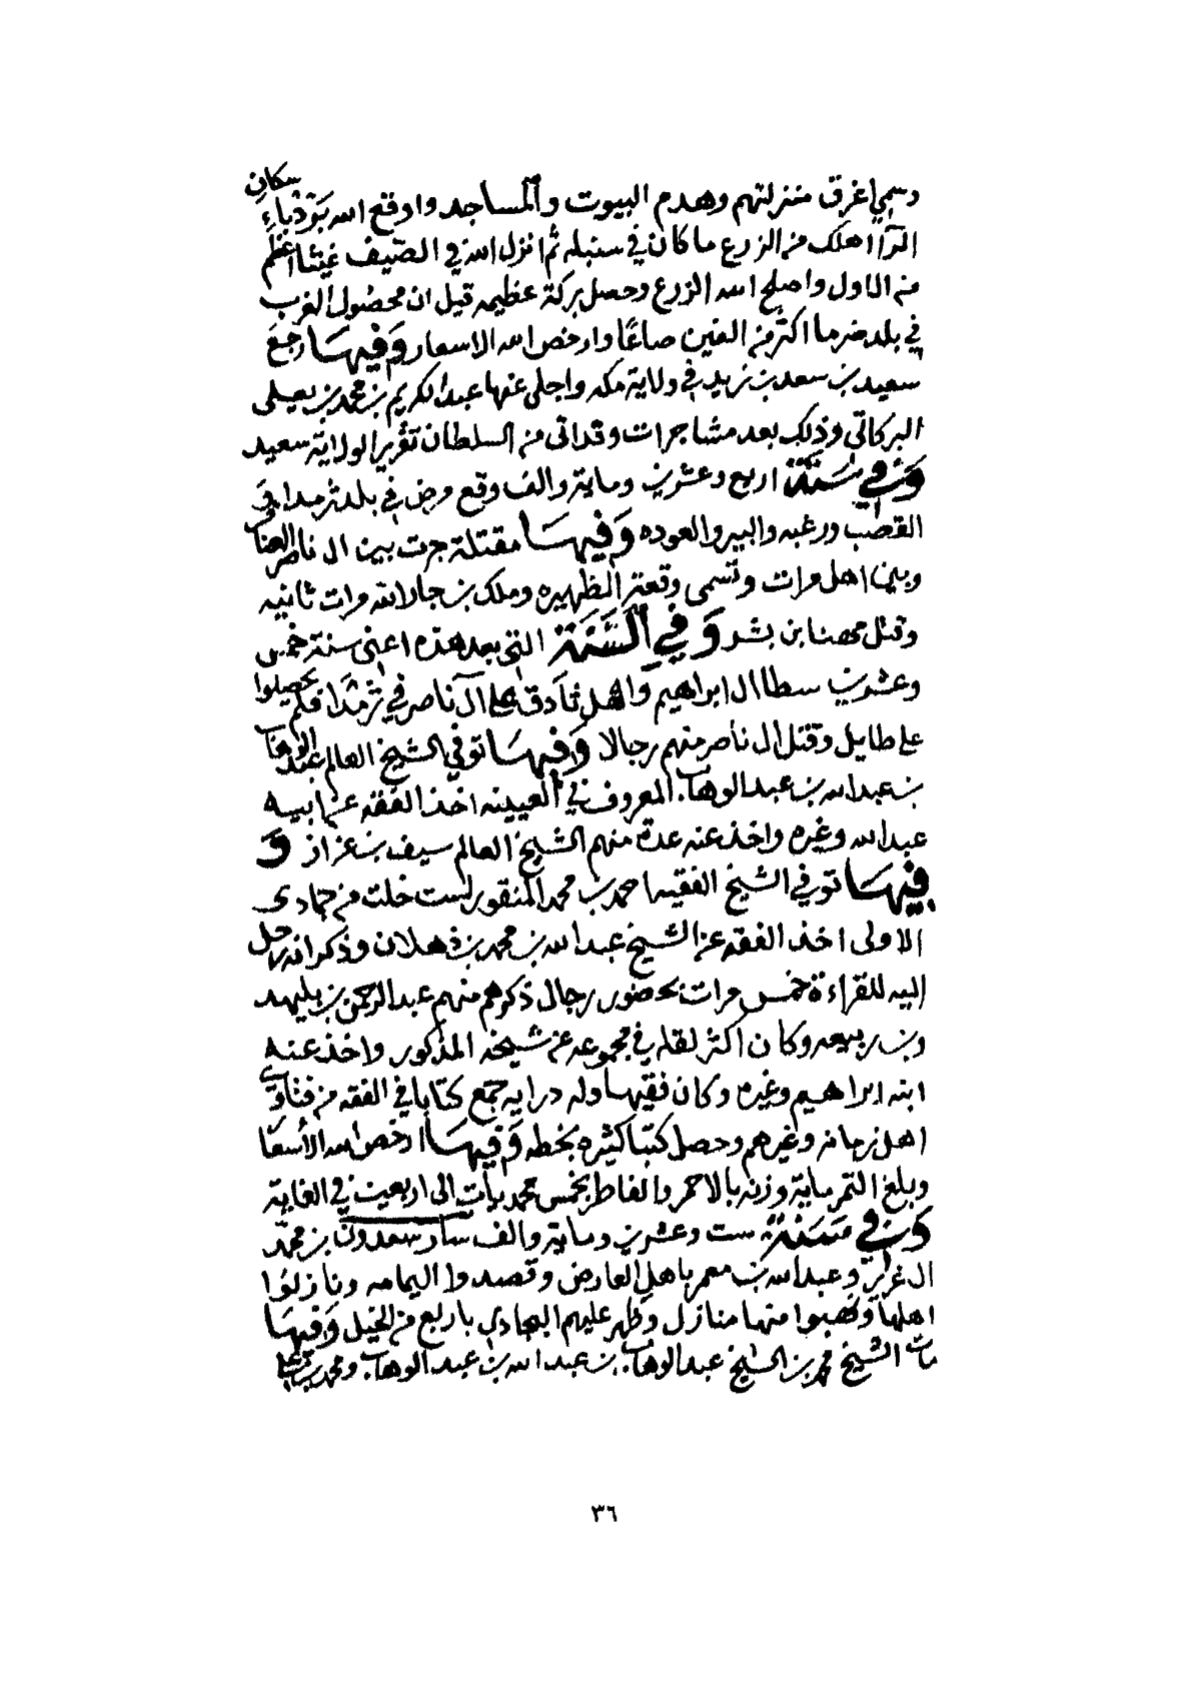 وسمي اغرق منزلتهم وهدم البيوت والمساجد واوقع الله بتوذباء سكان
اهلك من الزرع ما كان في سنبله ثم انزل الله في الصيف غيثا اعظم
من الاول واصلح الله الزرع وحصل بركة عظيمه قيل ان محصول الغرب
في بلد ضرما اكثر من الفين صاعًا وارخص الله الاسعار وَفيهَا رجع
سعيد بن سعد بن زيد في ولاية مكه واجلى عنها عبدالكريم بن محمد بن يعلى
البركاتي وذلك بعد مشاجرات وقد اتى من السلطان تقرير الولاية سعيد
وَفي سَنَة اربع وعشرين وماية والف وقع مرض في بلد ثرمدا في
القصب ورغبه والبير والعوده وَفيهَا مقتلة جرت بين ال ناصر العناقر
وبين اهل مرات وتسمى وقعة الظهيره وملك بن جارالله مرات ثانيه
وقتل مهنا بن بشر وَفي السَّنَة التي بعد هذه اعني سنة خمس
وعشرين سطا ال ابراهيم واهل ثادق على آل ناصر في ثرمدا فلم يحصلوا
على طايل وقتل ال ناصر منهم رجالا وَفيهَا توفي الشيخ العالم عبدالوهاب
بن عبدالله بن عبدالوهاب المعروف في العيينه اخذ الفقه عن ابيه
عبدالله وغيره واخذ عنه عدة منهم الشيخ العالم سيف بن عزاز وَ
فيهَا توفي الشيخ الفقيه احمد بن محمد المنقور لست خلت من جمادى
الاولى اخذ الفقه عن الشيخ عبدالله بن محمد بن ذهلان وذكر انه رحل
اليه للقراءة خمس مرات بحضور رجال ذكرهم منهم عبدالرحمن بن بليهد
وبن ربيعه وكان اكثر نقله في مجموعه عن شيخه المذكور واخذ عنه
ابنه ابراهيم وغيره وكان فقيها وله درايه جمع كتابا في الفقه من فتاوى
اهل زمانه وغيرهم وحصل كتبا كثيره بخطه وَفيهَا ارخص الله الأسعار
وبلغ التمر ماية وزنه بالاحمر والفاطر بخمس محمديات الى اربعين في الغاية
وَفي سَنَة ست وعشرين وماية والف سار سعدون بن محمد
ال غرير وعبدالله بن معمر باهل العارض وقصدوا اليمامه ونازلوا
اهلها ونهبوا منها منازل وظهر عليهم البجادي باربع من الخيل وَفيهَا
مات الشيخ محمد بن الشيخ عبدالوهاب بن عبدالله بن عبدالوهاب ومحمد بن علي
٣٦